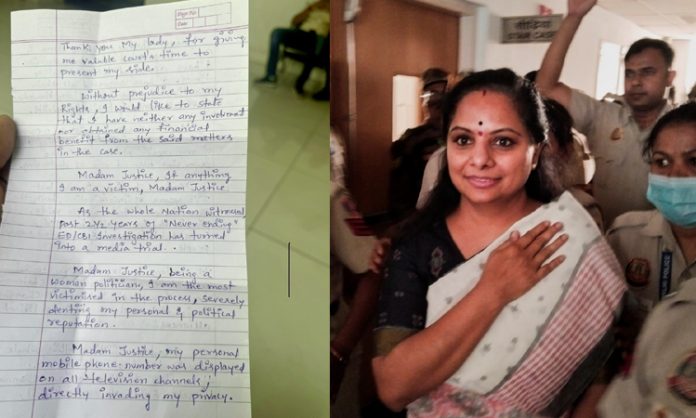 Page No.
Date
Thank you My lady, for giving
me valuable court's time to
present my side.
Without prejudice to my
Rights, I would like to state
that I have neither any involvement
nor obtained any financial
benefit from the said matters
in the case.
Madam Justice, If anything
I am a victim, Madam Justice.
As the whole Nation witnessed
Past 2½ years of "Never ending"
ED/CBI Investigation has turned
into a media trial.
Madam Justice, being a
woman politician, I am the most
victimised in the process, severely
denting my personal & political
reputation.
Madam Justice, my personal
mobile phone number was displayed
on all television channels,
directly invading my privacy.
STAIR CASE
POLICE